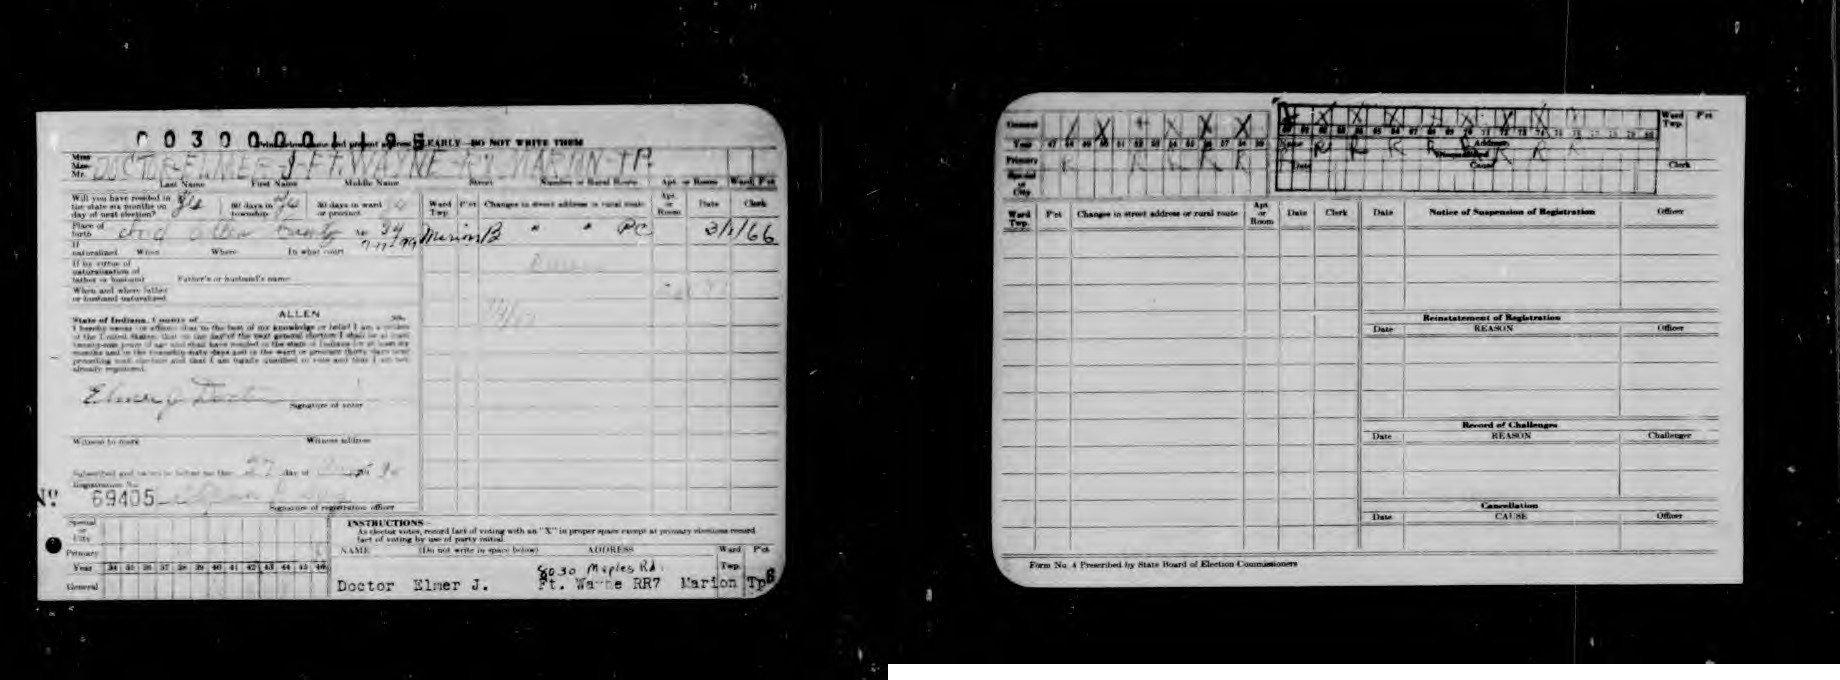 00300001195
EARLY—DO NOT WRITE THEM
Miss
Mrs.
Mr. DOCTOR-ELMER-J-FT. WAYNE-R7. MARION-TP.
Last Name First Name Middle Name Street Number or Rural Route Apt. or Room Ward Pct
Will you have resided in
the state six months on
day of next election? Yes 60 days in township Yes 30 days in ward or precinct
Ward Twp. P'ct Changes in street address or rural route Apt. or Room Date Clerk
Place of birth Ind Allen County
Marion B " " 3/1/66
If naturalized When Where In what court
If by virtue of
naturalization of
father or husband Father's or husband's name
When and where father
or husband naturalized
State of Indiana, County of ALLEN ss.
I hereby swear (or affirm) that to the best of my knowledge or belief I am a citizen
of the United States; that on the day of the next general election I shall be at least
twenty-one years of age and shall have resided in the state of Indiana for at least six
months and in the township sixty days and in the ward or precinct thirty days next
preceding such election and that I am legally qualified to vote and that I am not
already registered.
Elmer J Doctor
Signature of voter
Witness to mark Witness address
Subscribed and sworn to before me this 27 day of
Registration No.
No 69405
Signature of registration officer
Special or City
Primary
Year 34 35 36 37 38 39 40 41 42 43 44 45 46
General
INSTRUCTIONS—
As elector votes, record fact of voting with an "X" in proper space except at primary elections record
fact of voting by use of party initial.
NAME (Do not write in space below) ADDRESS Ward Twp. P'ct
8030 Maples Rd.
Doctor Elmer J. Ft. Wayne RR7 Marion Tp B
General X X X
Year 47 48 49 50 51 52 53 54 55 56 57 58 59
Primary R R R R R R
Special or City
Ward Twp. P'ct
Name Address
Date Cause Clerk
Ward Twp. P'ct Changes in street address or rural route Apt. or Room Date Clerk
Date Notice of Suspension of Registration Officer
Reinstatement of Registration
Date REASON Officer
Record of Challenges
Date REASON Challenger
Cancellation
Date CAUSE Officer
Form No. 4 Prescribed by State Board of Election Commissioners